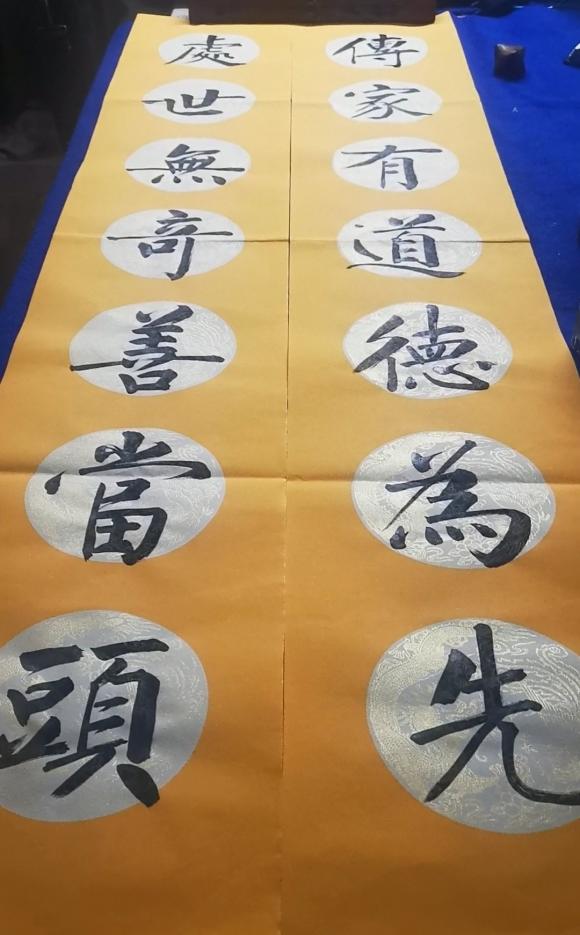 傳家有道德為先
處世無奇善當頭